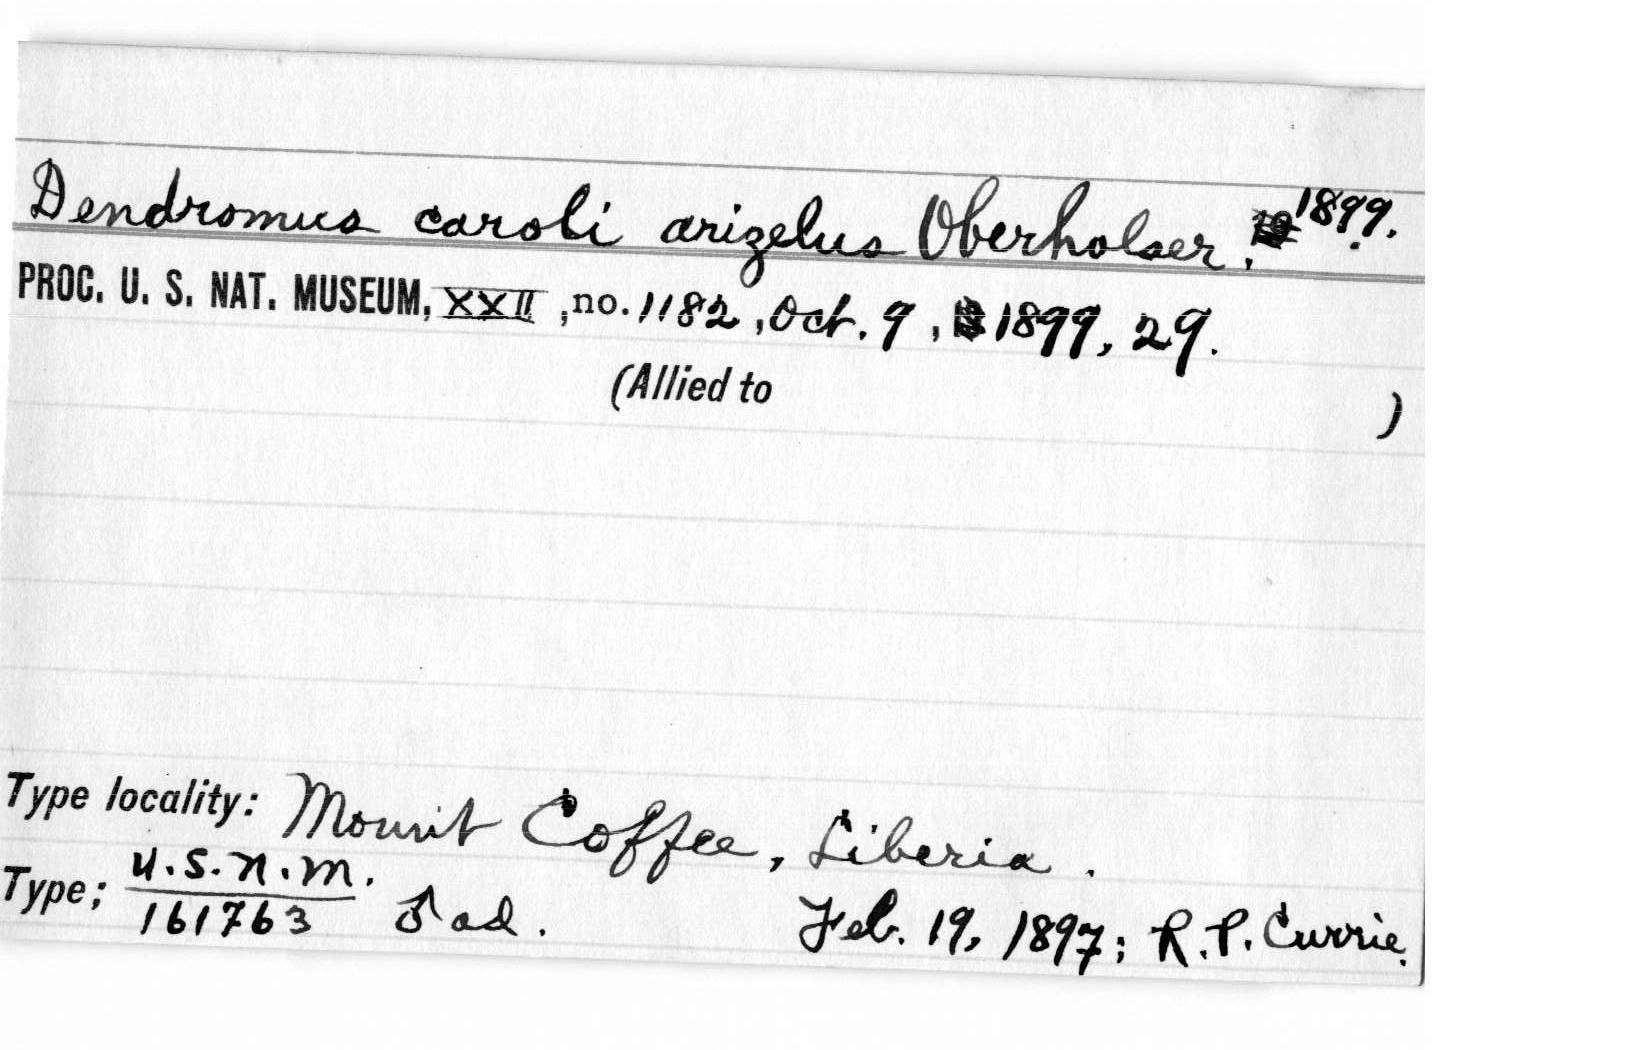 Dendromus caroli arizelus Oberholser, 1899.
PROC. U. S. NAT. MUSEUM, XXII, no. 1182, Oct. 9, 1899, 29.
(Allied to )
Type locality: Mount Coffee, Liberia.
Type; U.S.N.M. 161763 ♂ ad. Feb. 19, 1897; R.P. Currie.